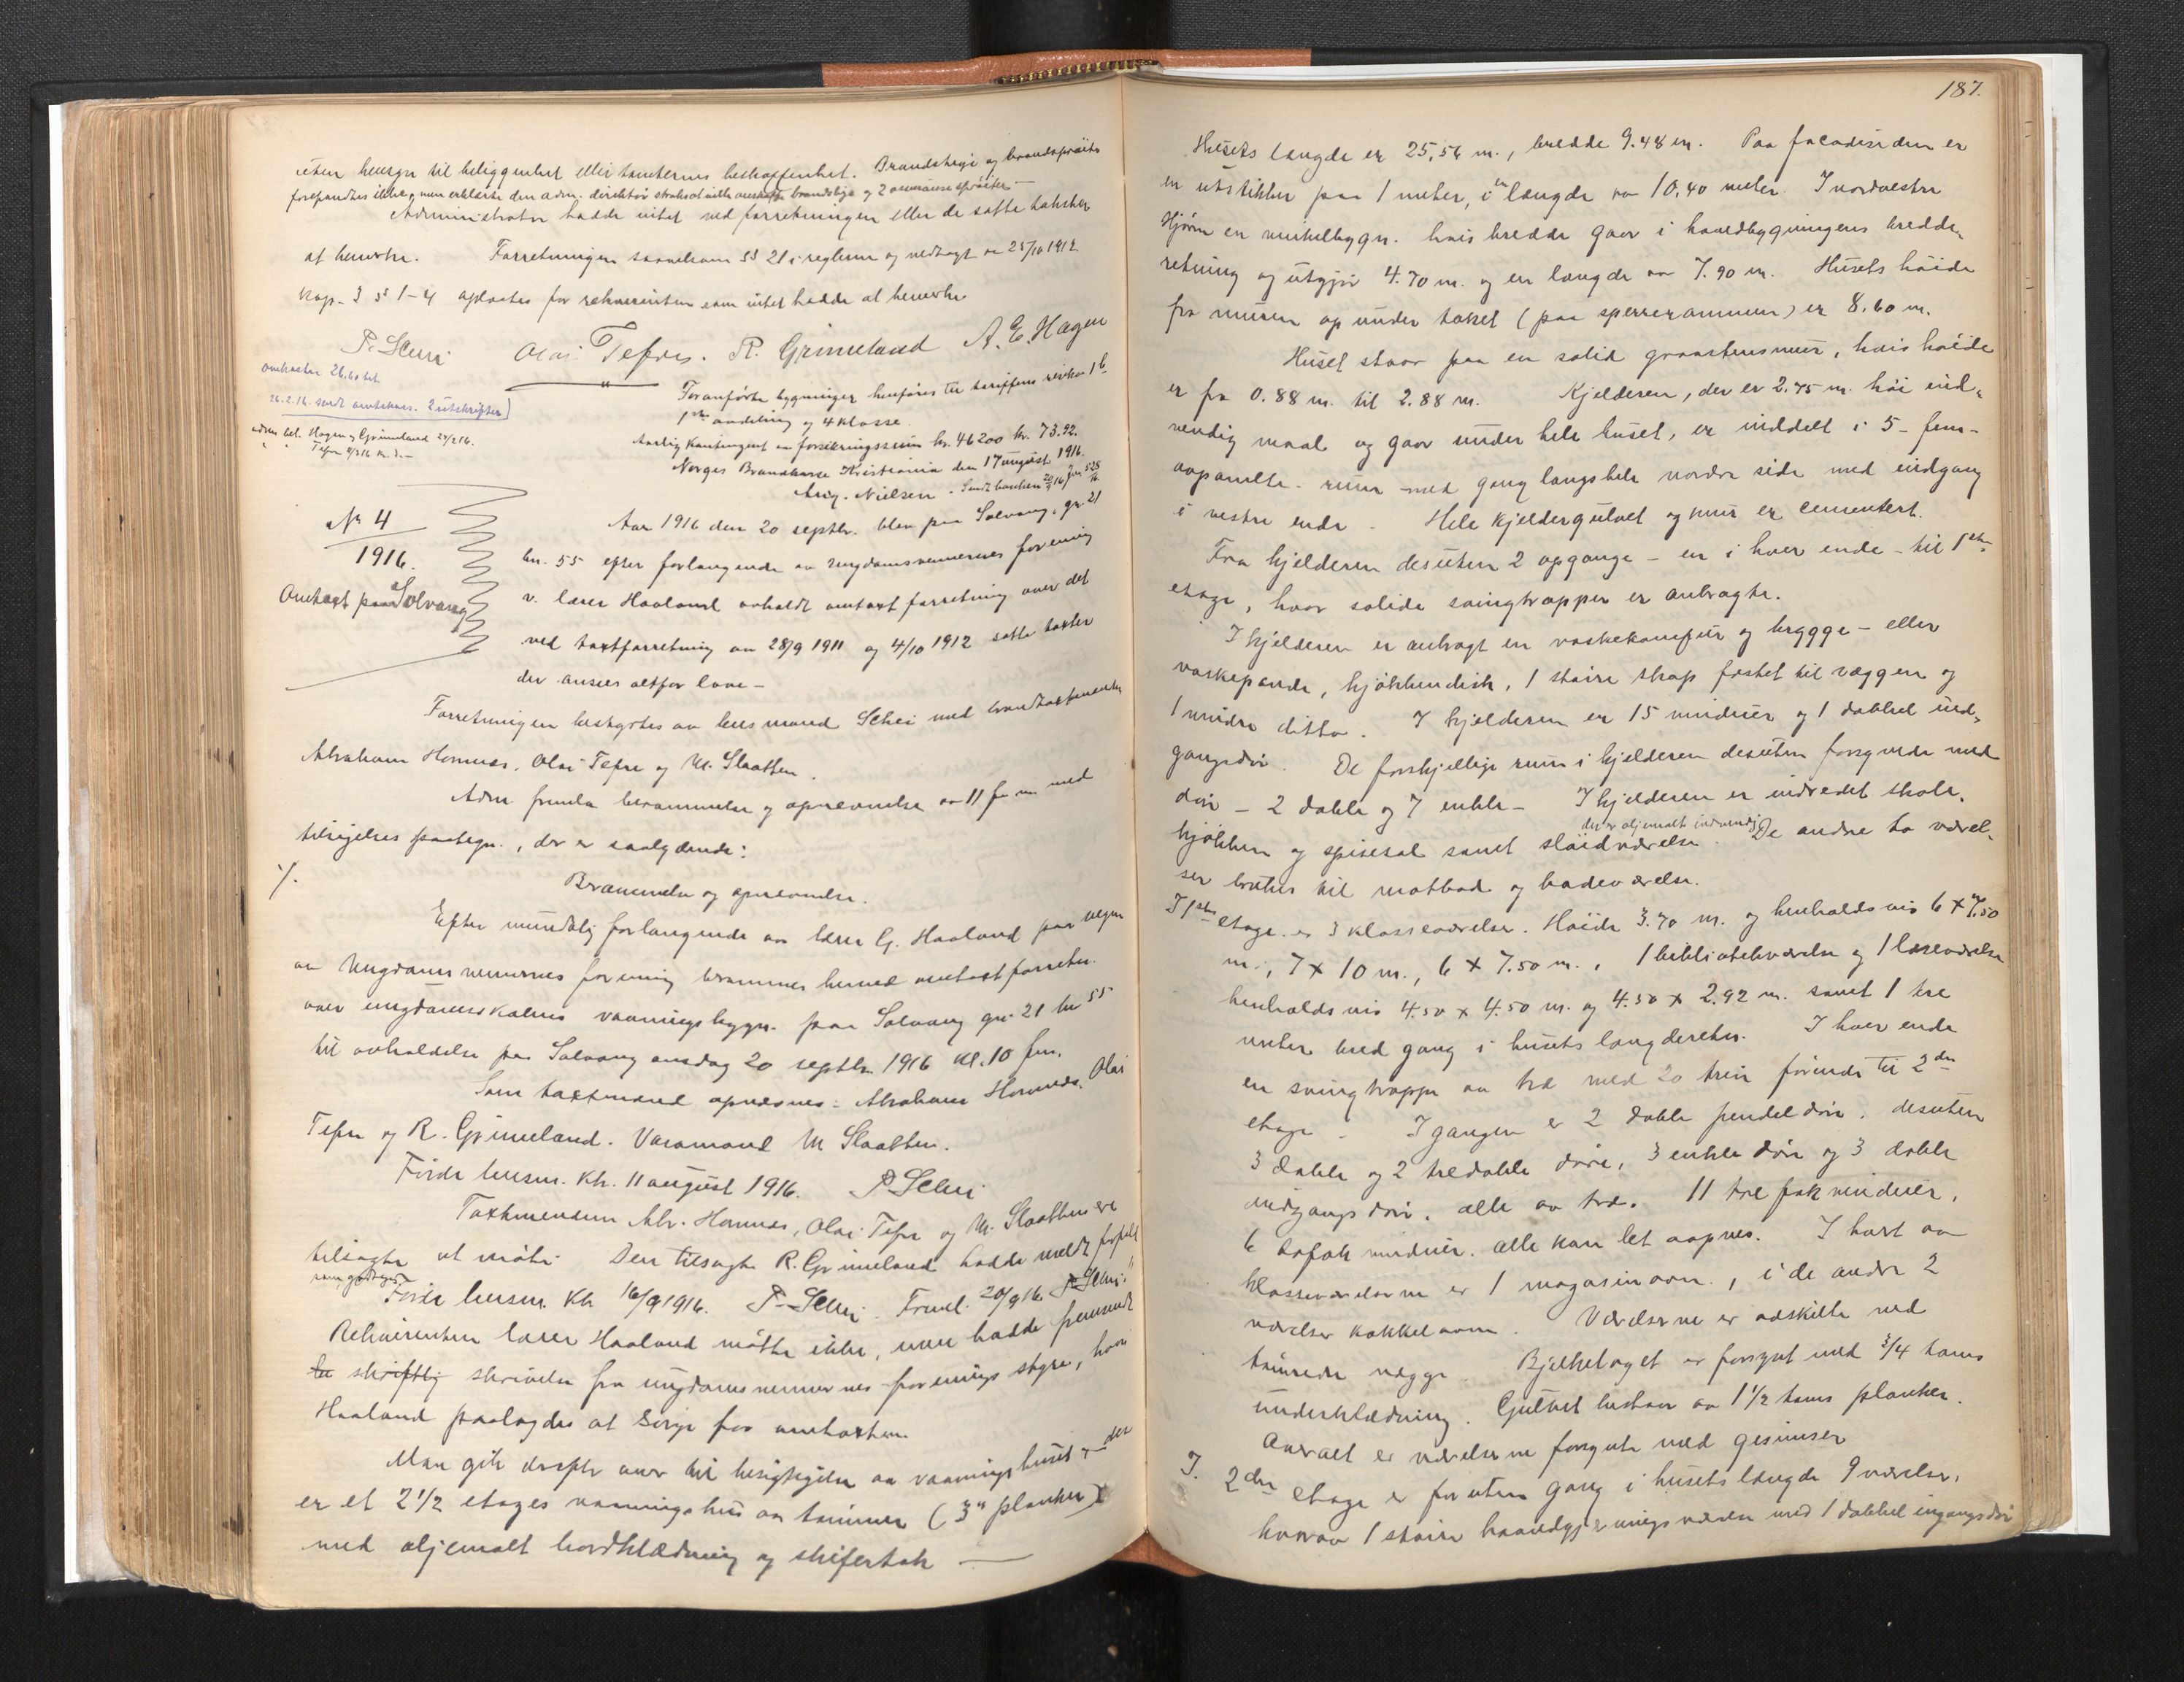 uten hensyn til beliggenhet eller tomternes beskaffenhet. Brandstige og brandsprøite
forefandtes ikke, men erklærte den adm. direktør straks at ville anskaffe brandstige og 2 assurancesprøiter
Administrator hadde intet ved forretningen eller de satte takster
at bemerke. Forretningen saavelsom §§ 21 i reglerne og vedtægt av 25/10 1912
kap. 3 §§ 1-4 oplæstes for rekvirenten som intet hadde at bemerke
P. Schei Olai Tefre. R. Grimeland A. E. Hagen
omkostn 26.60 bet.
26.2.16. sendt amtskass. 2 utskrifter
utlæn bet. Hagen og Grimeland 24/2 16.
" " Tefre 4/3 16 kr. 3.—
Foranførte bygninger henføres til tariffens rivkl 1 b
1ste avdeling og 4 klasse.
Aarlig kontingent av forsikringssum kr. 46200 kr. 73.92.
Norges Brandkasse Kristiania den 17 august 1916.
Aug. Nielsen.
No 4
1916.
Omtaxt paa Solvang
Aar 1916 den 20 septbr. blev paa Solvang, gr. 21
bn. 55 efter forlangende av ungdomsvennernes forening
v. lærer Haaland avholdt omtaxtforretning over det
ved taxtforretning av 28/9 1911 og 4/10 1912 satte taxter
der ansees altfor lave —
Forretningen bestyrtes av lensmand Schei med brandtaxtmændene
Abraham Hornnes, Olai Tefre og M. Slaatten.
Adm. fremla berammelse og opnævnelse av 11 f. m. med
tilsigelses paategn., der er saalydende:
%.
Berammelse og opnævnelse.
Efter mundtlig forlangende av lærer G. Haaland paa vegne
av Ungdomsvennernes forening berammes herved omtaxtforretn.
over ungdomsskolens vaaningsbygn. paa Solvang gr. 21 bn 55
til avholdelse paa Solvang onsdag 20 septbr. 1916 kl. 10 fm.
Som taxtmænd opnævnes: Abraham Hornnes, Olai
Tefre og R. Grimeland. Varamand M Slaatten.
Førde lensm. kt. 11 august 1916. P. Schei
Taxtmændene Abr. Hornnes, Olai Tefre og M. Slaatten er
tilsagte at møte. Den tilsagte R. Grimeland hadde meldt forfald
som godtages
Førde lensm. kt 16/9 1916. P. Schei. Freml. 20/9 16 P. Schei.
Rekvirenten lærer Haaland møtte ikke, men hadde fremsendt
en skriftlig skrivelse fra ungdomsvennernes forenings styre, hvori
Haaland paalægdes at sørge for omtaxten
Man gik derefter over til besigtigelse av vaaningshuset — der
er et 2 1/2 etages vaaningshus av tømmer (3" planker)
med oljemalt bordklædning og skifertak —
187.
Husets længde er 25,56 m., bredde 9.48 m. Paa facadesiden er
en utstikker paa 1 meter, i en længde av 10,40 meter. I nordvestre
Hjørne en vinkelbygn. hvis bredde gaar i hovedbygningens bredde-
retning og utgjør 4.70 m. og en længde av 7.90 m. Husets høide
fra muren op under taket (paa sperrerammen) er 8,60 m.
Huset staar paa en solid graastensmur, hvis høide
er fra 0.88 m. til 2.88 m. Kjelderen, der er 2.75 m. høi ind-
vendig maal og gaar under hele huset, er inddelt i 5 - fem -
avpanelte rum med gang langs hele nordre side med indgang
i vestre ende. Hele kjeldergulvet og mur er cementert.
Fra kjelderen desuten 2 opgange — en i hver ende — til 1ste
etage, hvor solide svingtrapper er anbragte.
I kjelderen er anbragt en vaskekomfur og brygge- eller
vaskepande, kjøkkendisk, 1 større skap fæstet til væggen og
1 mindre ditto. I kjelderen er 15 vinduer og 1 dobbel ind-
gangsdør. De forskjellige rum i kjelderen desuten forsynede med
dør — 2 doble og 7 enkle — I kjelderen er indredet skole-
kjøkken og spisesal samt sløidværelse. De andre to værel-
der er oljemalt indvendig
ser brukes til matbod og badeværelse.
I 1ste etage er 3 klasseværelser. Høide 3.70 m. og henholdsvis 6 x 7.50
m., 7 x 10 m., 6 x 7.50 m., 1 bibliotekværelse og 1 læseværelse
henholdsvis 4.50 x 4.50 m. og 4.50 x 2.92 m. samt 1 tre
meter bred gang i husets længderetn. I hver ende
en svingtrappe av træ med 20 trin førende til 2den
etage. I gangen er 2 doble pendeldøre, desuten
3 doble og 2 tredoble døre, 3 enkle døre og 3 doble
indgangsdøre, alle av træ. 11 trefaks vinduer,
6 tofak vinduer. alle kan let aapnes. I hvert av
klasseværelserne er 1 magasinovn., i de andre 2
værelser kakkelovn. Værelserne er adskilte ved
tømrede vægge. Bjelkelaget er forsynt med 3/4 toms
underklædning. Gulvet bestaar av 1 1/2 toms planker.
Overalt er værelserne forsynte med gesimser
I. 2den etage er foruten gang i husets længde 9 værelser,
hvorav 1 større haandgjerningsværelse med 1 dobbel ingangsdør